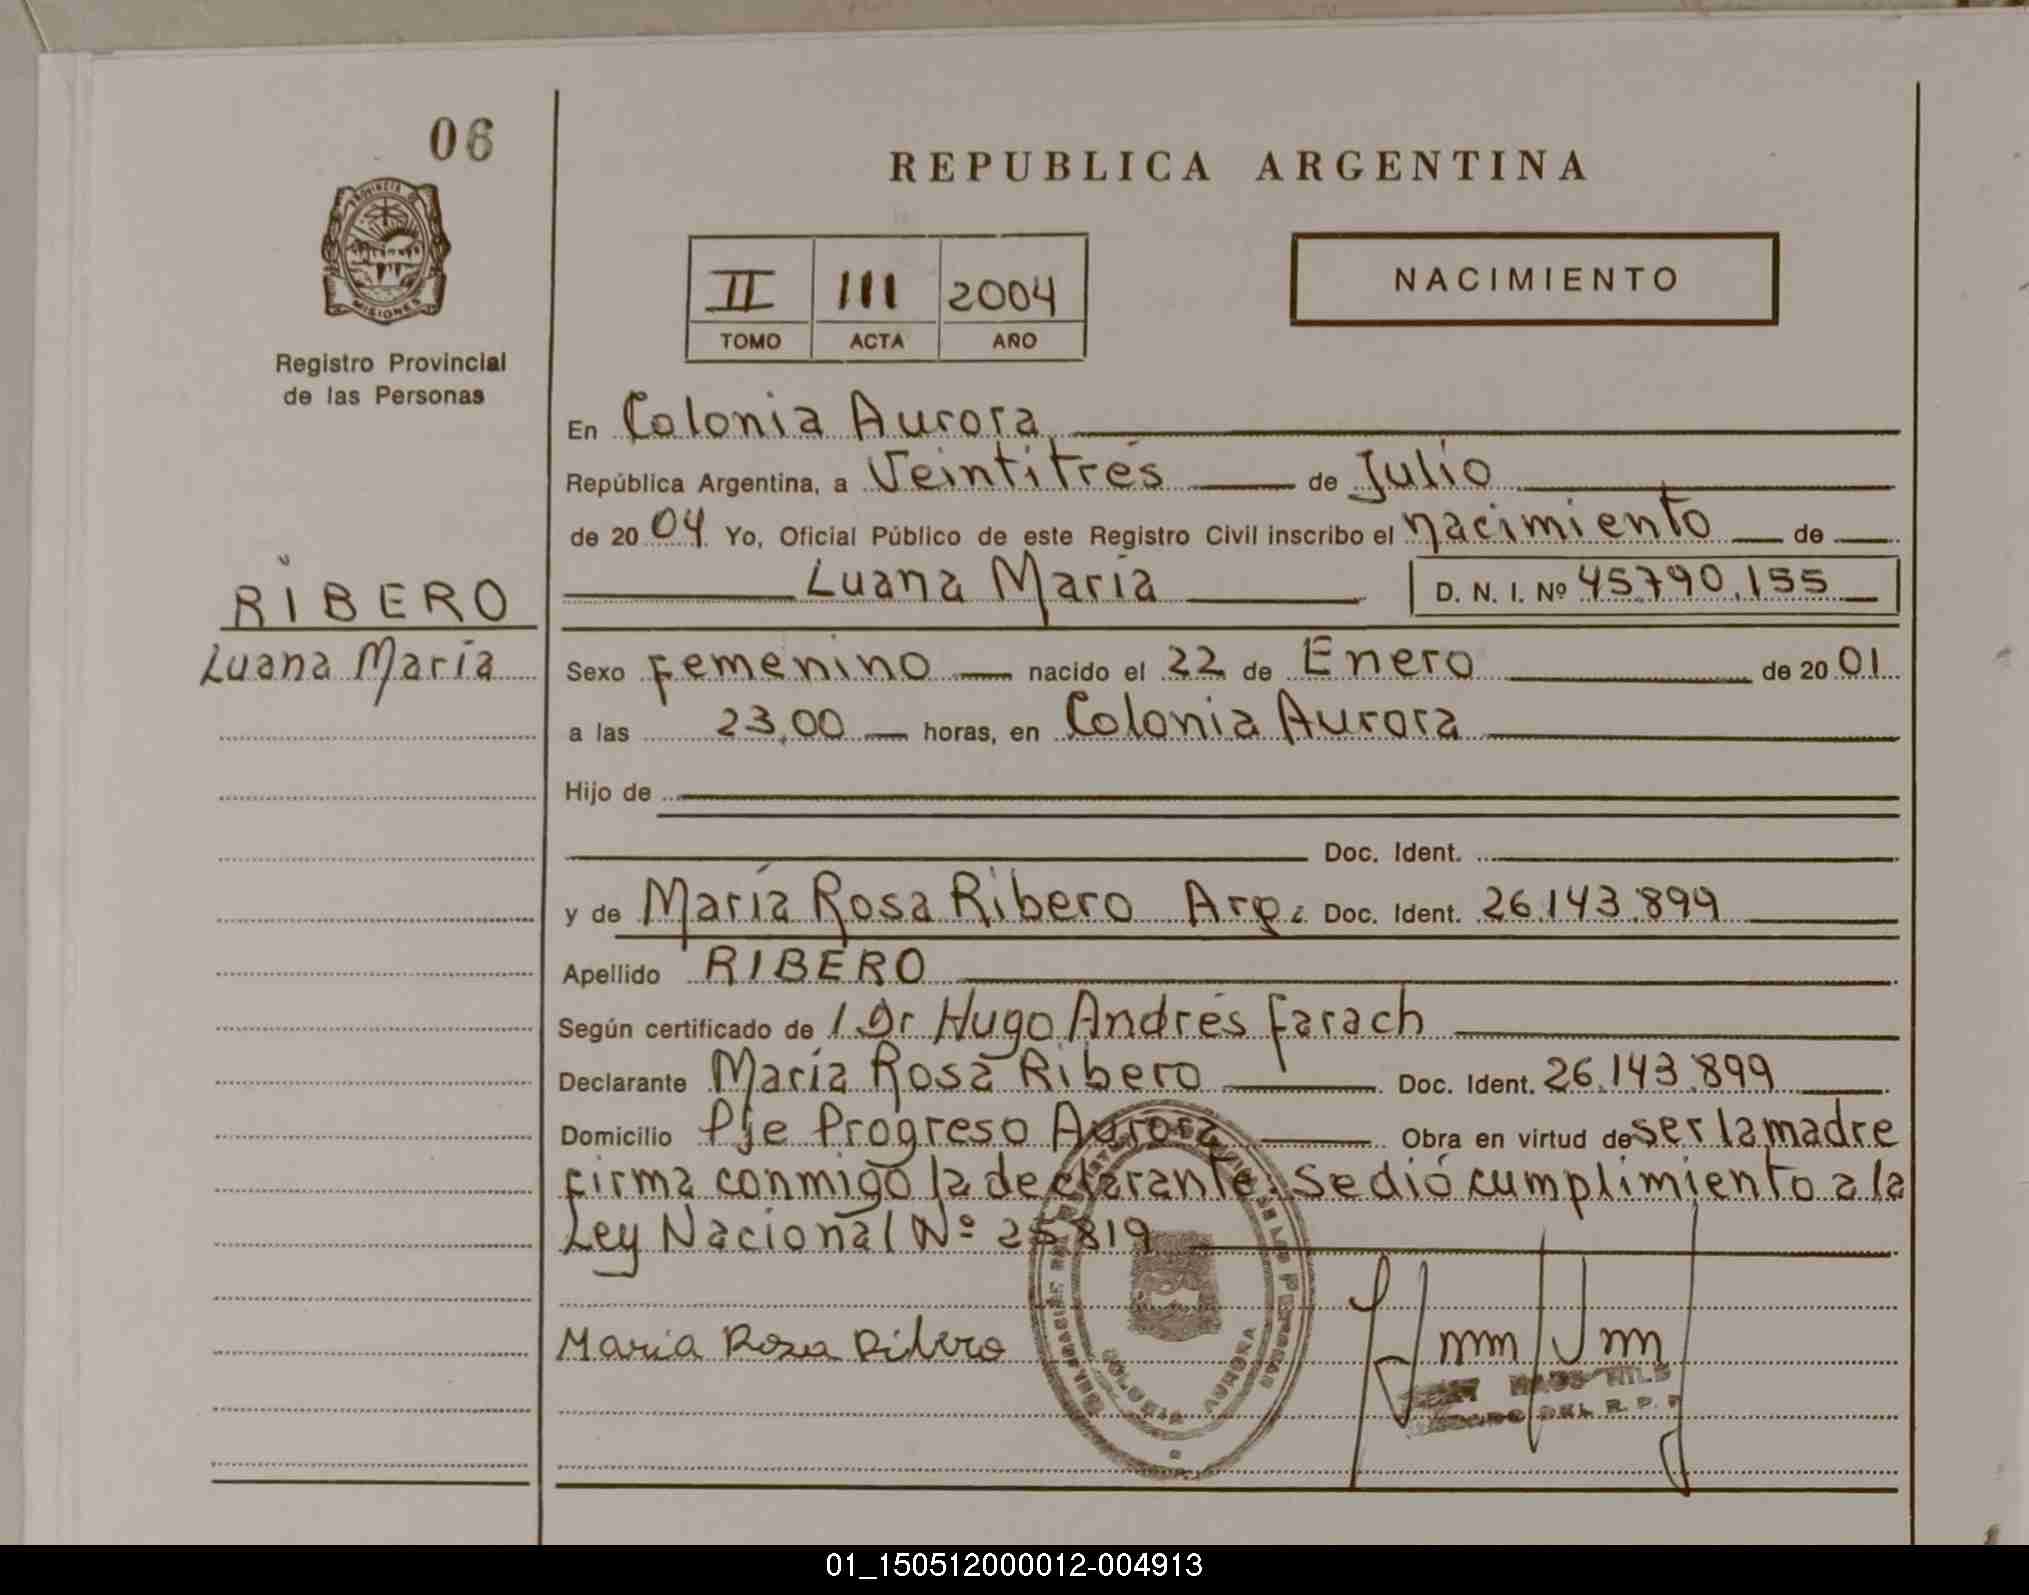 06
REPUBLICA ARGENTINA
PROVINCIA DE
MISIONES
Registro Provincial
de las Personas
II III 2004
TOMO ACTA AÑO
NACIMIENTO
En Colonia Aurora
República Argentina, a Veintitrés de Julio
de 2004 Yo, Oficial Público de este Registro Civil inscribo el nacimiento de
RIBERO
Luana María
Luana María D. N. I. Nº 45.790.155
Sexo Femenino nacido el 22 de Enero de 2001
a las 23,00 horas, en Colonia Aurora
Hijo de
Doc. Ident.
y de María Rosa Ribero Arg. Doc. Ident. 26.143.899
Apellido RIBERO
Según certificado de l Dr Hugo Andrés Farach
Declarante María Rosa Ribero Doc. Ident. 26.143.899
Domicilio Pje Progreso Aurora Obra en virtud de ser la madre
firma conmigo la declarante. Se dió cumplimiento a la
Ley Nacional Nº 25819
María Rosa Ribero
AURORA
DEL R. P. P
01_150512000012-004913